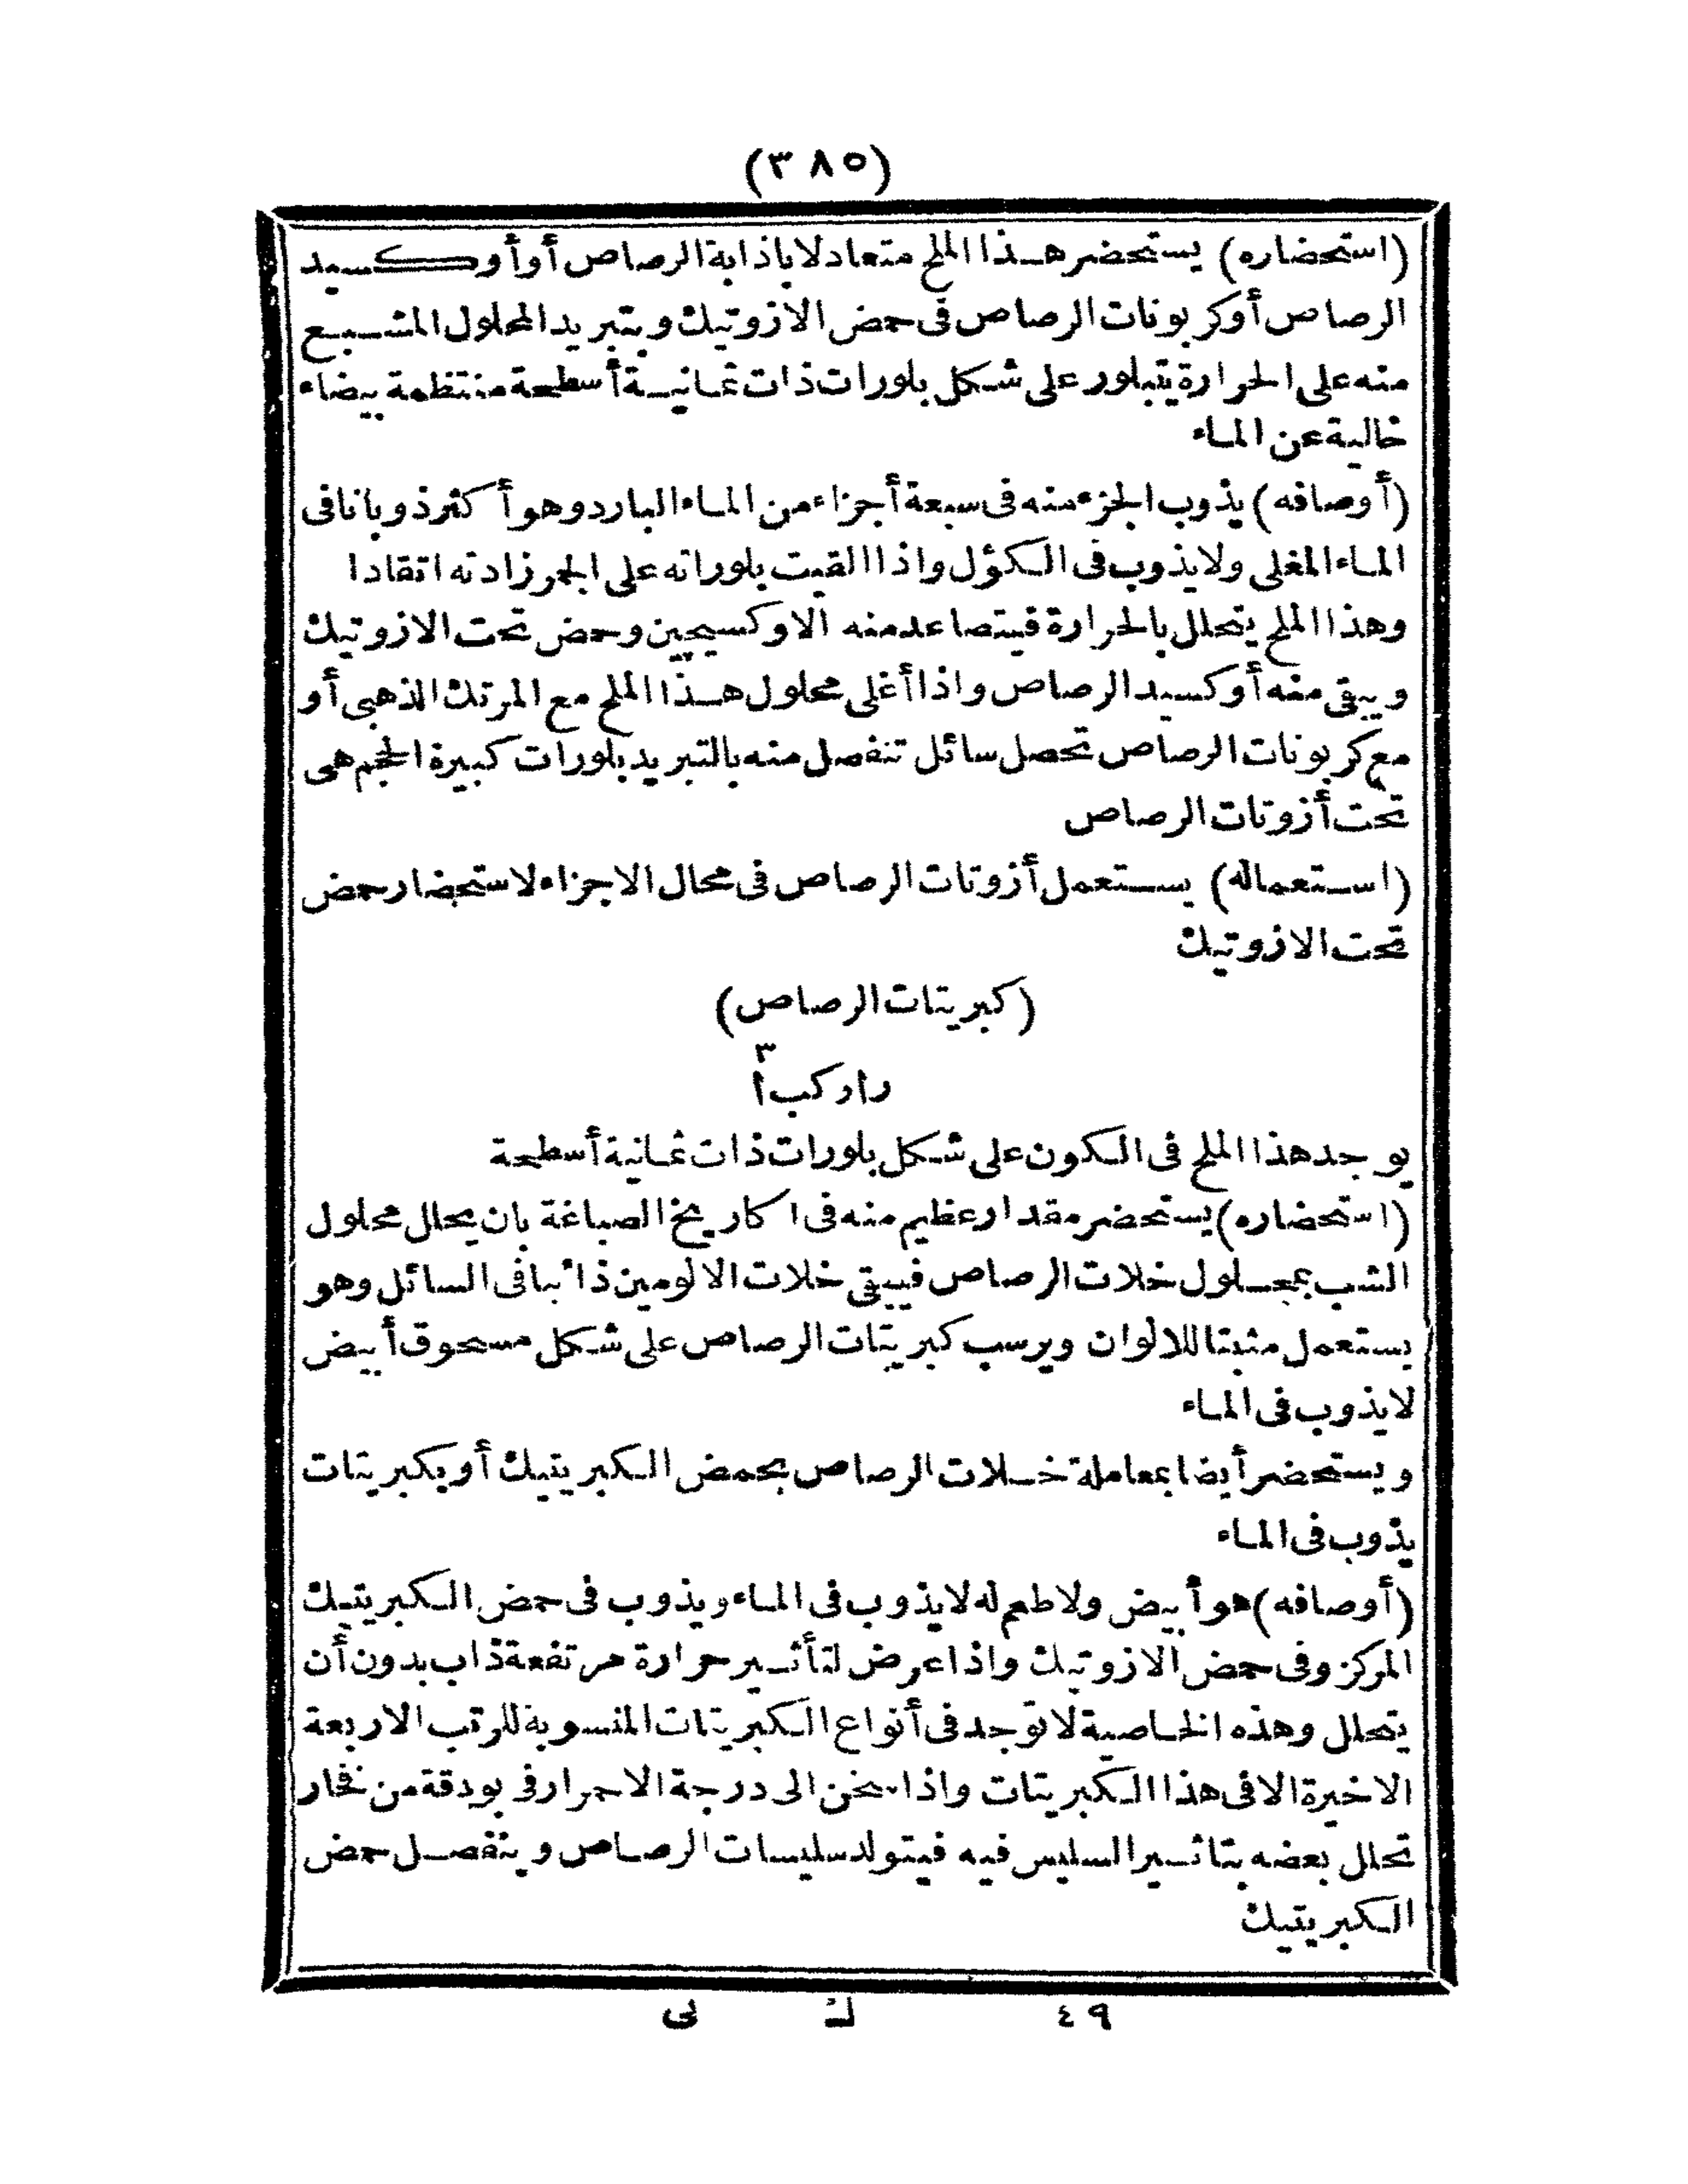 (٣٨٥)
(استحضاره) يستحضر هذا الملح متعادلا باذابة الرصاص أو أوكسيد
الرصاص أو كربونات الرصاص فى حمض الازوتيك وبتبريد المحلول المشبع
منه على الحرارة يتبلور على شكل بلورات ذات ثمانية أسطحة منتظمة بيضاء
خالية عن الماء
(أوصافه) يذوب الجزء منه فى سبعة أجزاء من الماء البارد وهو أكثر ذوبانا فى
الماء المغلى ولا يذوب فى الكؤل واذا القيت بلوراته على الجمر زادته اتقادا
وهذا الملح يتحلل بالحرارة فيتصاعد منه الاوكسيجين وحمض تحت الازوتيك
ويبقى منه أوكسيد الرصاص واذا أغلى محلول هذا الملح مع المرتك الذهبى أو
مع كربونات الرصاص تحصل سائل تنفصل منه بالتبريد بلورات كبيرة الحجم هى
تحت أزوتات الرصاص
(استعماله) يستعمل أزوتات الرصاص فى محال الاجزاء لاستحضار حمض
تحت الازوتيك
(كبريتات الرصاص)
٣
را ر كب ا
يوجد هذا الملح فى الكون على شكل بلورات ذات ثمانية أسطحة
(استحضاره) يستحضر مقدار عظيم منه فى اكاريخ الصباغة بان يحلل محلول
الشب بمحلول خلات الرصاص فيبقى خلات الالومين ذائبا فى السائل وهو
يستعمل مثبتا للالوان ويرسب كبريتات الرصاص على شكل مسحوق أبيض
لا يذوب فى الماء
ويستحضر أيضا بمعاملة خلات الرصاص بحمض الكبريتيك أو بكبريتات
يذوب فى الماء
(أوصافه) هو أبيض ولا طعم له لا يذوب فى الماء ويذوب فى حمض الكبريتيك
المركز وفى حمض الازوتيك واذا عرض لتأثير حرارة مرتفعة ذاب بدون أن
يتحلل وهذه الخاصية لا توجد فى أنواع الكبريتات المنسوبة للرتب الاربعة
الاخيرة الا فى هذا الكبريتات واذا سخن الى درجة الاحمرار فى بودقة من فخار
تحلل بعضه بتاثير السليس فيه فيتولد سليسات الرصاص وينفصل حمض
الكبريتيك
٤٩ ك لى